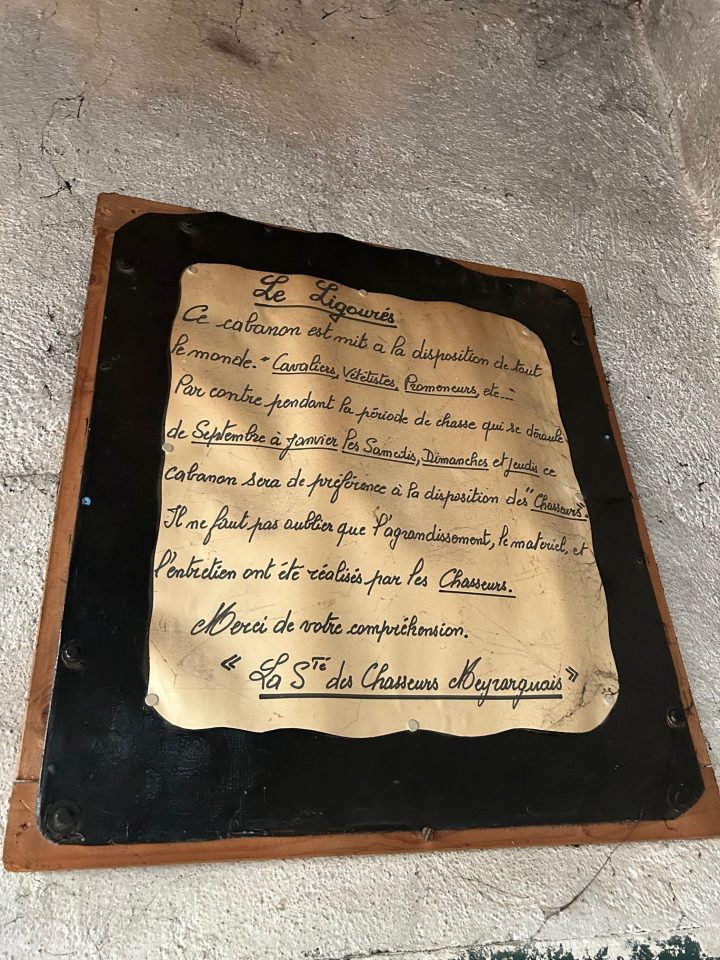 Le Ligourés
Ce cabanon est mit a la disposition de tout
le monde. " Cavaliers, Vététistes, Promoneurs, etc...
Par contre pendant la période de chasse qui se déroule
de Septembre à Janvier les Samedis, Dimanches et Jeudis ce
cabanon sera de préférence à la disposition des "Chasseurs".
Il ne faut pas oublier que l'agrandissement, le materiel, et
l'entretien ont été réalisés par les Chasseurs.
Merci de votre compréhension.
« La Sté des Chasseurs Meyrarguais »